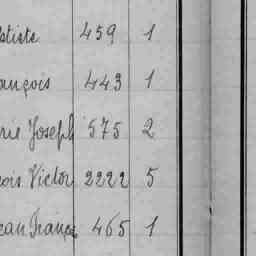 ptiste 459 1
ançois 443 1
rie Joseph 575 2
çois Victor 2222 5
ean Franç 465 1